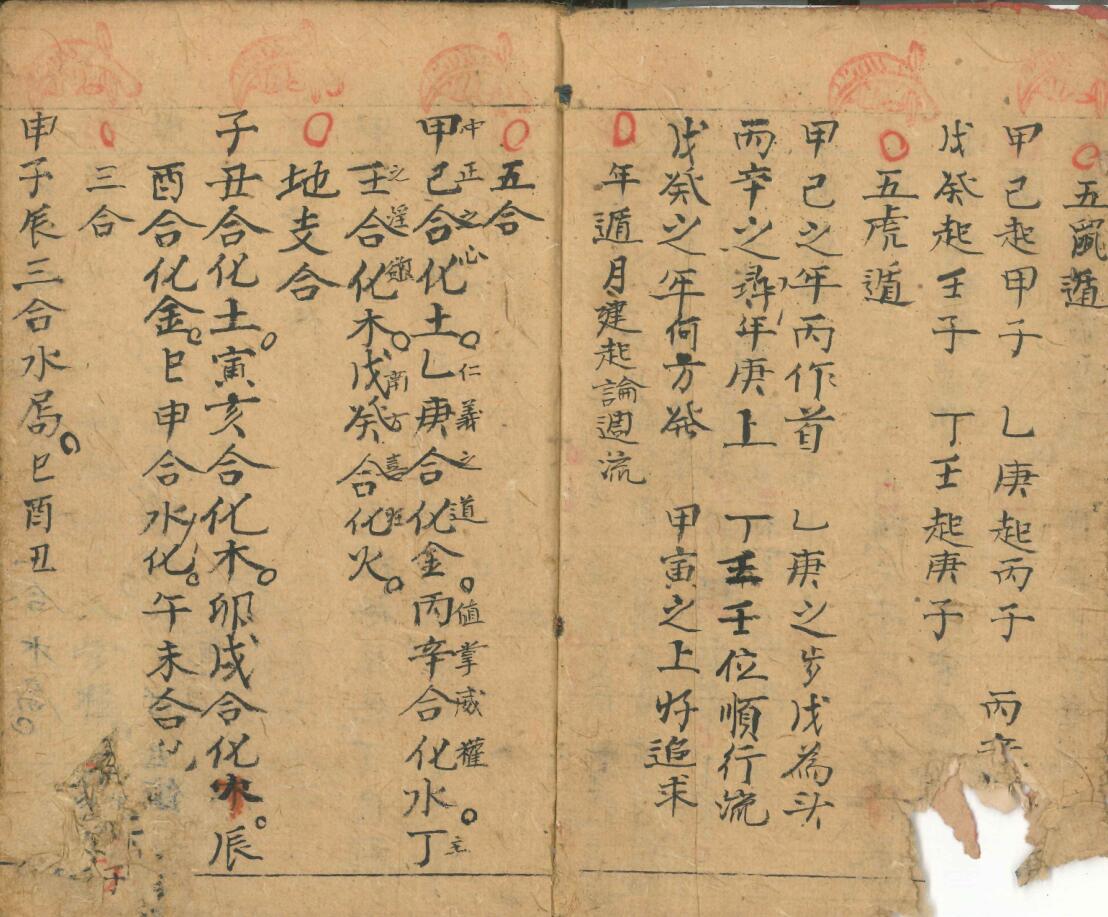 五鼠遁
甲己起甲子 乙庚起丙子 丙辛
戊癸起壬子 丁壬起庚子
五虎遁
甲己之年丙作首 乙庚之步戊為头
丙辛之年庚上 丁壬位順行流
戊癸之年何方發 甲寅之上好追求
年遁月建起論週流
五合
中正之心 仁義之道 值掌威權 主
甲己合化土。乙庚合化金。丙辛合化水。丁
之淫 南方喜旺
壬合化木。戊癸合化火。
地支合
子丑合化土。寅亥合化木。卯戌合化火。辰
酉合化金。巳申合水化。午未合化
三合
申子辰三合水局。巳酉丑